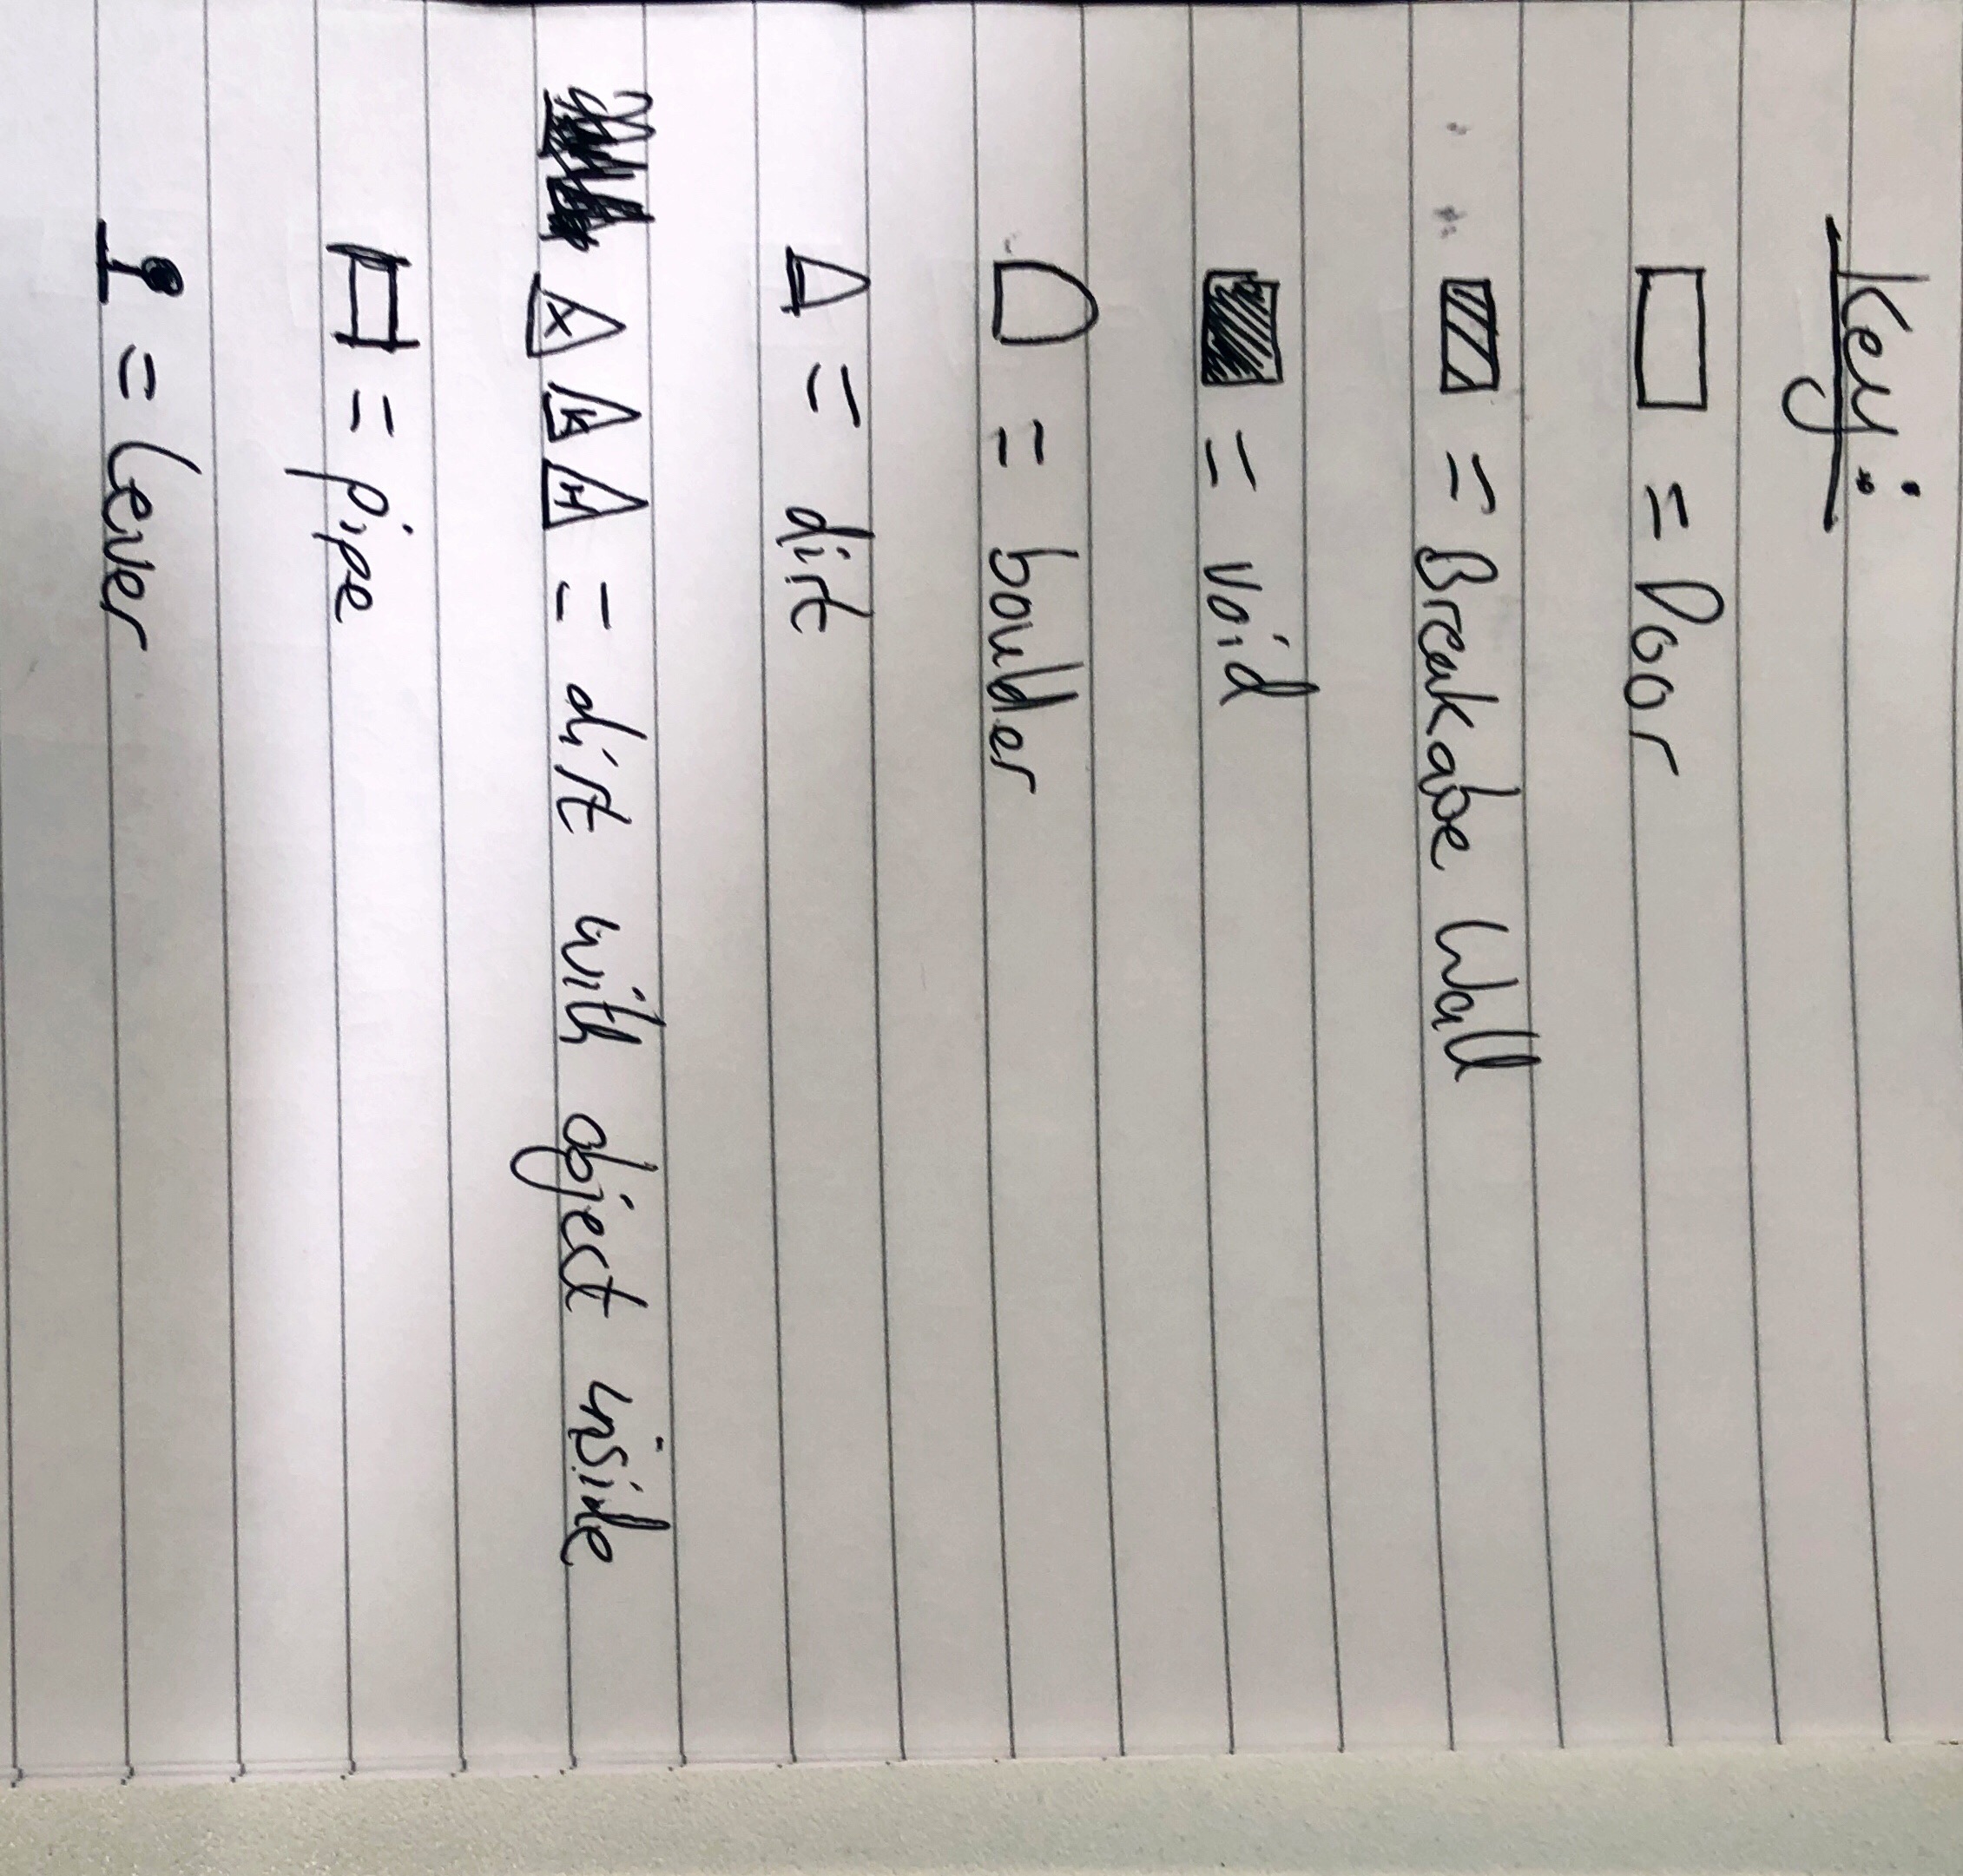 Key:
= Door
= Breakabe Wall
= void
= boulder
= dirt
X K H = dirt with object inside
= pipe
= lever